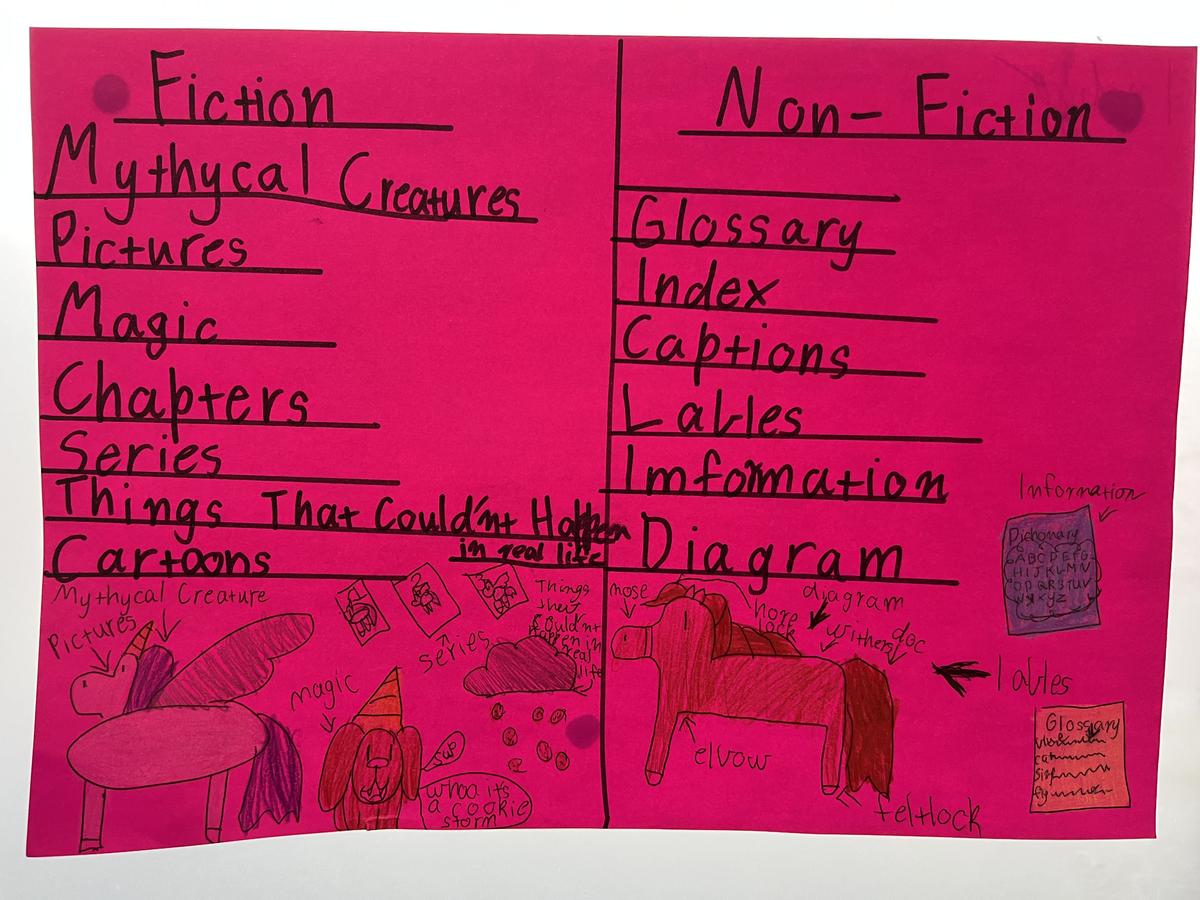 Fiction
Mythycal Creatures
Pictures
Magic
Chapters
Series
Things That Could'nt Happen
in real life
Cartoons
Mythycal Creature
Pictures
magic
series
Things
Couldn't
Happen in
real
life
sup
whoa its
a cookie
storm
Non-Fiction
Glossary
Index
Captions
Lables
Imformation
Diagram
nose
diagram
withers
doc
lables
elvow
Information
Dictionary
ABCDEFG
HIJKLMN
OPQRSTUV
WXYZ
Glossary
cat